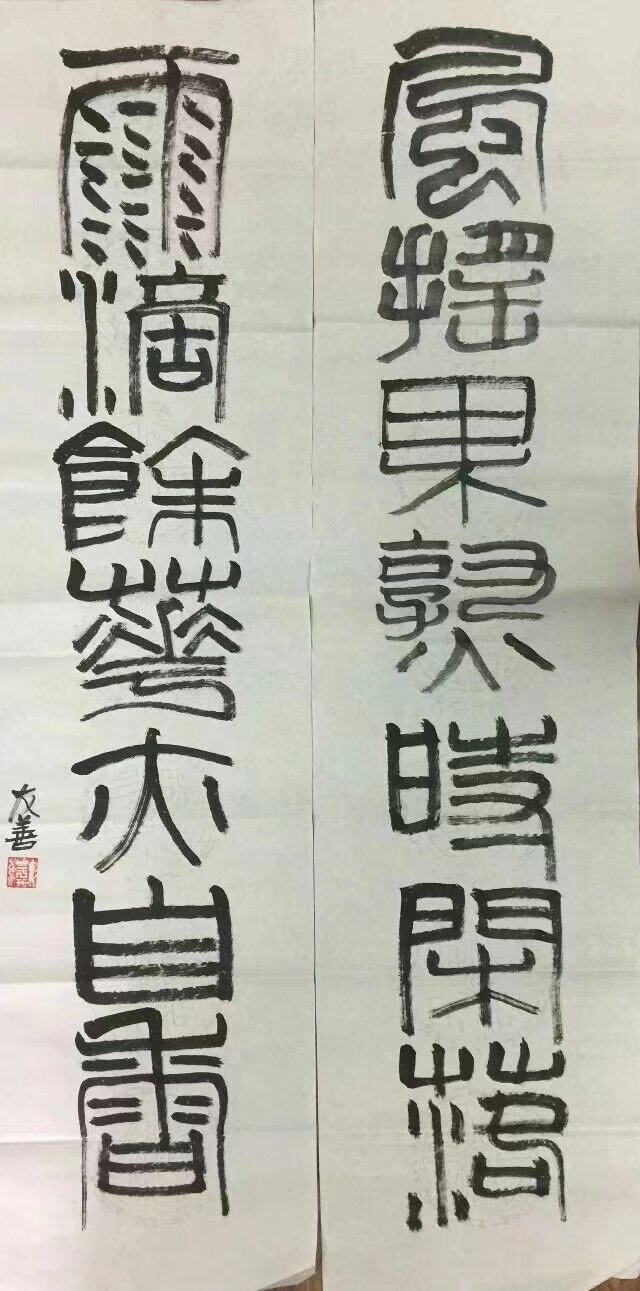 風搖果熟時閑落
雨滴餘華亦自香
友善